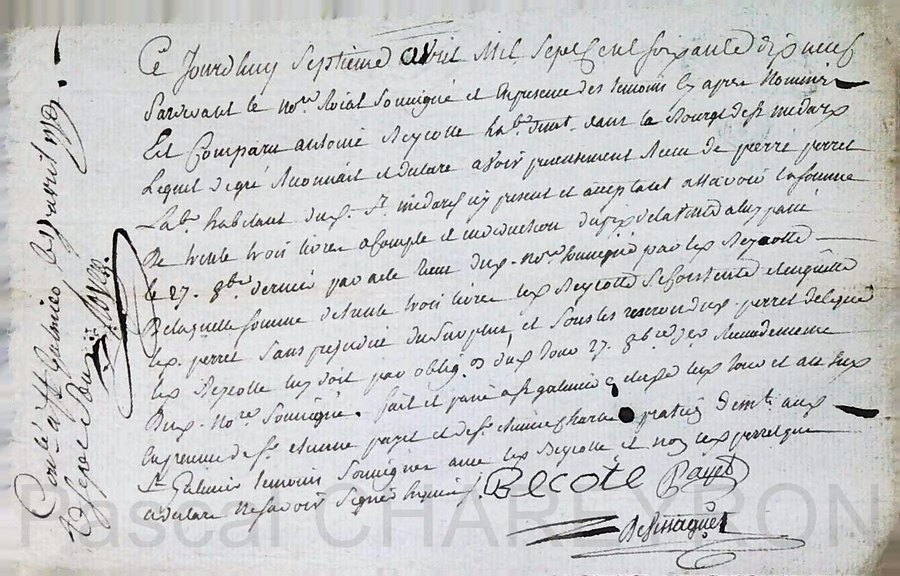 Ce Jourdhuy Septieme avril Mil Sept Cent soixante dix neuf
Pardevant le no.re Roial Soussigné et En presence des temoins cy apres Nommés
Est Comparu antoine Reycotte hab.t dans le Bourg de S.t medard
Lequel de gré Reconnait et declare avoir presentement Receu de pierre perret
Lab.r habitant dud. S.t medard icy present et acceptant assavoir la somme
De trente trois livres acompte et en deduction du prix de la vente a luy passé
le 27. 8bre dernier par acte Receu dud. no.re soussigné par led. Reycotte
De laquelle somme de trente trois livres led. Reycotte Se Contente et en quitte
led. perret Sans prejudice du Surplus et Sous les reserves dud. perret de ce que
led. Reycotte luy doit par oblig.on du d. jour 27. 8bre
Dud. No.re Soussigné. fait et passé a S.t galmier Etude led. jour et an sus
En presence de S.r etienne payet et de S.r praticien demt. aud.
S.t Galmier temoins Soussignés avec led. Reycotte et non led. perret qui
a declare ne Savoir Signer Enquis /.
Recote Payet
Con.lé a S.t Galmier le avril 1779
Pascal CHAREYRON